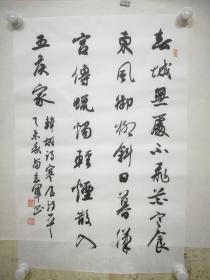 春城無處不飛花寒食
東風御柳斜日暮漢
宮傳蠟燭輕煙散入
五侯家
韓翃詩寒食詩一
乙未秋書